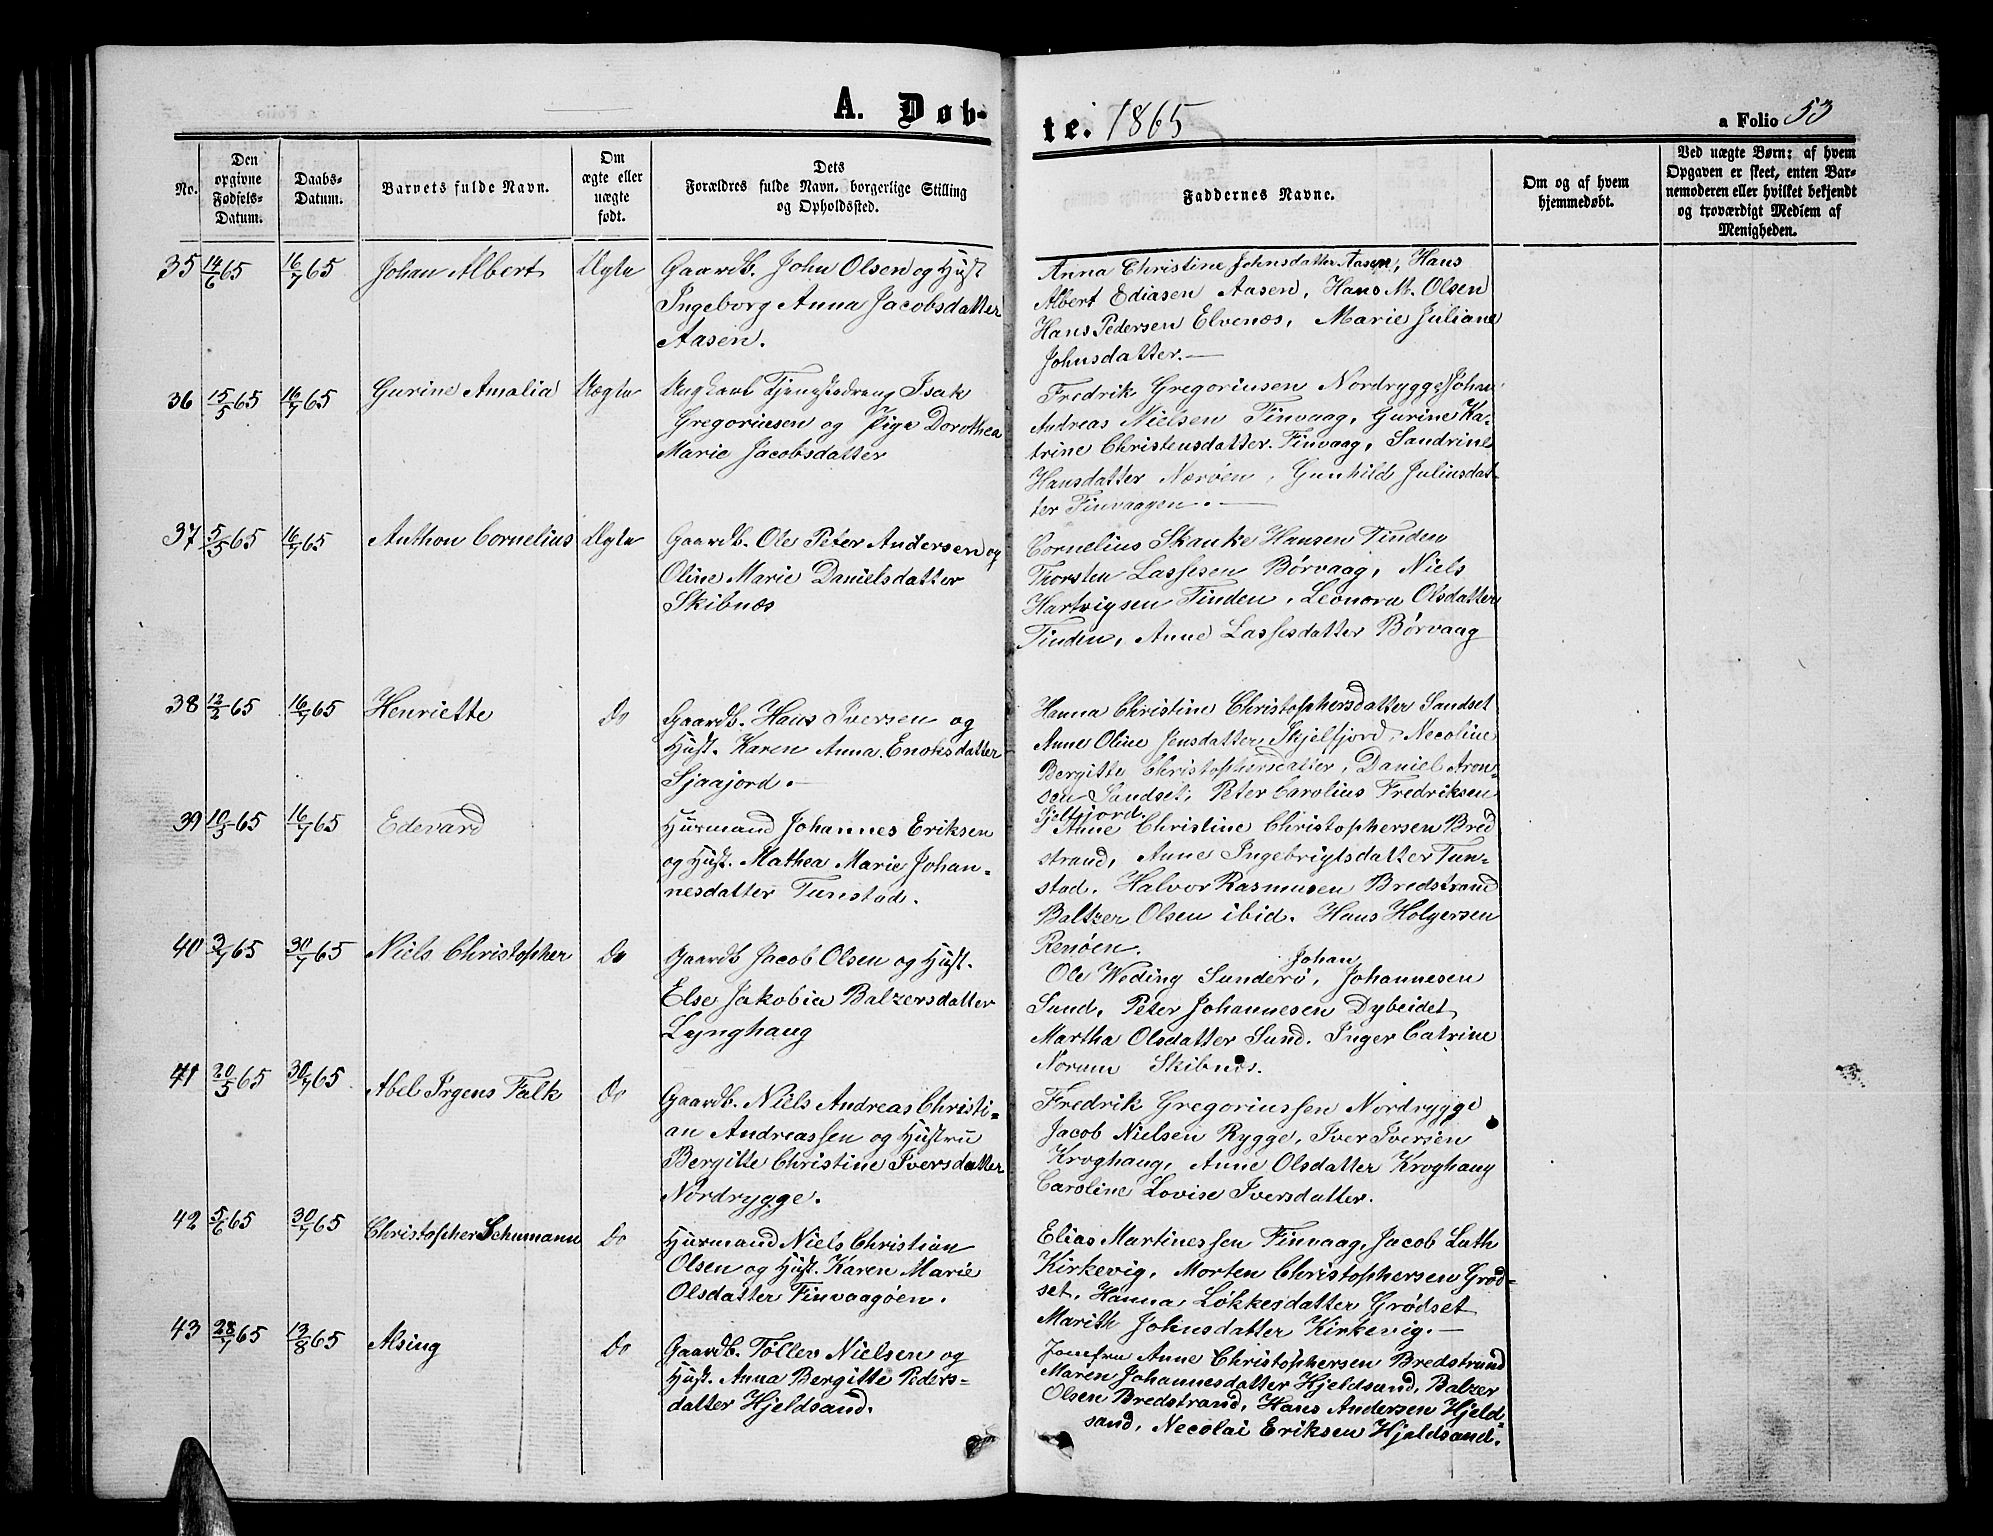 A. Døb-
te. 1865
a Folio 53
No.
Den
opgivne
Fødsels-
Datum.
Daabs-
Datum.
Barnets fulde Navn.
Om
ægte eller
uægte
født.
Dets
Forældres fulde Navn, borgerlige Stilling
og Opholdssted.
Faddernes Navne.
Om og af hvem
hjemmedøbt.
Ved uægte Børn: af hvem
Opgaven er skeet, enten Bar-
nemoderen eller hvilket bekjendt
og troværdigt Medlem af
Menigheden.
35 14/6 65 16/7 65 Johan Albert Ægte
Gaardb. John Olsen og Hust.
Ingeborg Anna Jacobsdatter
Aasen.
Anna Christine Johnsdatter Aasen, Hans
Albert Ediasen Aasen, Hans M. Olsen
Hans Pedersen Elvenæs, Marie Juliane
Johnsdatter.—
36 15/5 65 16/7 65 Gurine Amalia Uægte
Ungkarl Tjenestedreng Isak
Gregoriusen og Pige Dorothea
Marie Jacobsdatter
Fredrik Gregoriusen Nordrygge, Johan
Andreas Nielsen Finvaag, Gurine Ka-
trine Christensdatter Finvaag, Sandrine
Hansdatter Nærøen, Gunhild Juliusdat-
ter Finvaagen.—
37 5/5 65 16/7 65 Anthon Cornelius Ægte
Gaardb. Ole Peter Andersen og
Oline Marie Danielsdatter
Skibnæs
Cornelius Skanke Hansen Tinden
Thorsten Lassesen Børvaag, Niels
Hartvigsen Tinden, Leonora Olsdatter
Tinden, Anne Lassesdatter Børvaag
38 12/2 65 16/7 65 Henriette Do
Gaardb. Hans Iversen og
Hust. Karen Anna Enoksdatter
Sjaajord.—
Hanna Christine Christophersdatter Sandset
Anne Oline Jensdatter Skjelfjord, Necoline
Bergitte Christophersdatter, Daniel Aron-
sen Sandset, Peter Carolius Fredriksen
Sjelfjord.
39 10/3 65 16/7 65 Edevard
Husmand Johannes Eriksen
og Hust. Mathea Marie Johan-
nesdatter Tunstad.
Anne Christine Christophersen Bred
strand, Anne Ingebrigtsdatter Tun-
stad. Halvor Rasmusen Bredstrand
Baltzer Olsen ibid. Hans Holgersen
Renøen.
40 3/7 65 30/7 65 Niels Christopher Do
Gaardb Jacob Olsen og Hust.
Else Jakobia Balzersdatter
Lynghaug
Johan
Ole Weding Sunderø, Johannesen
Sund, Peter Johannesen Dybeidet
Martha Olsdatter Sund. Inger Catrine
Norum Skibnæs.
41 20/5 65 30/7 65 Abel Irgens Falk Do
Gaardb. Niels Andreas Christi-
an Andreassen og Hustru
Bergitte Christine Iversdatter
Nordrygge.
Fredrik Gregoriussen Nordrygge
Jacob Nielsen Rygge, Iver Iversen
Kroghaug, Anne Olsdatter Kroghaug
Caroline Lovise Iversdatter.
42 5/6 65 30/7 65 Christopher Schumann Do
Husmand Niels Christian
Olsen og Hust. Karen Marie
Olsdatter Finvaagøen.
Elias Martinessen Finvaag, Jacob Lath
Kirkevig, Morten Christophersen Grød-
set, Hanna Løkkesdatter Grødset
Marith Johnsdatter Kirkevig.—
43 28/7 65 13/8 65 Alsing Do
Gaardb. Tollev Nielsen og
Hust. Anna Bergitte Peders-
datter Hjeldsand.
Jomfru Anne Christophersen Bredstrand
Maren Johannesdatter Hjeldsand, Balzer
Olsen Bredstrand, Hans Andersen Hjeld-
sand, Necolai Eriksen Hjeldsand.